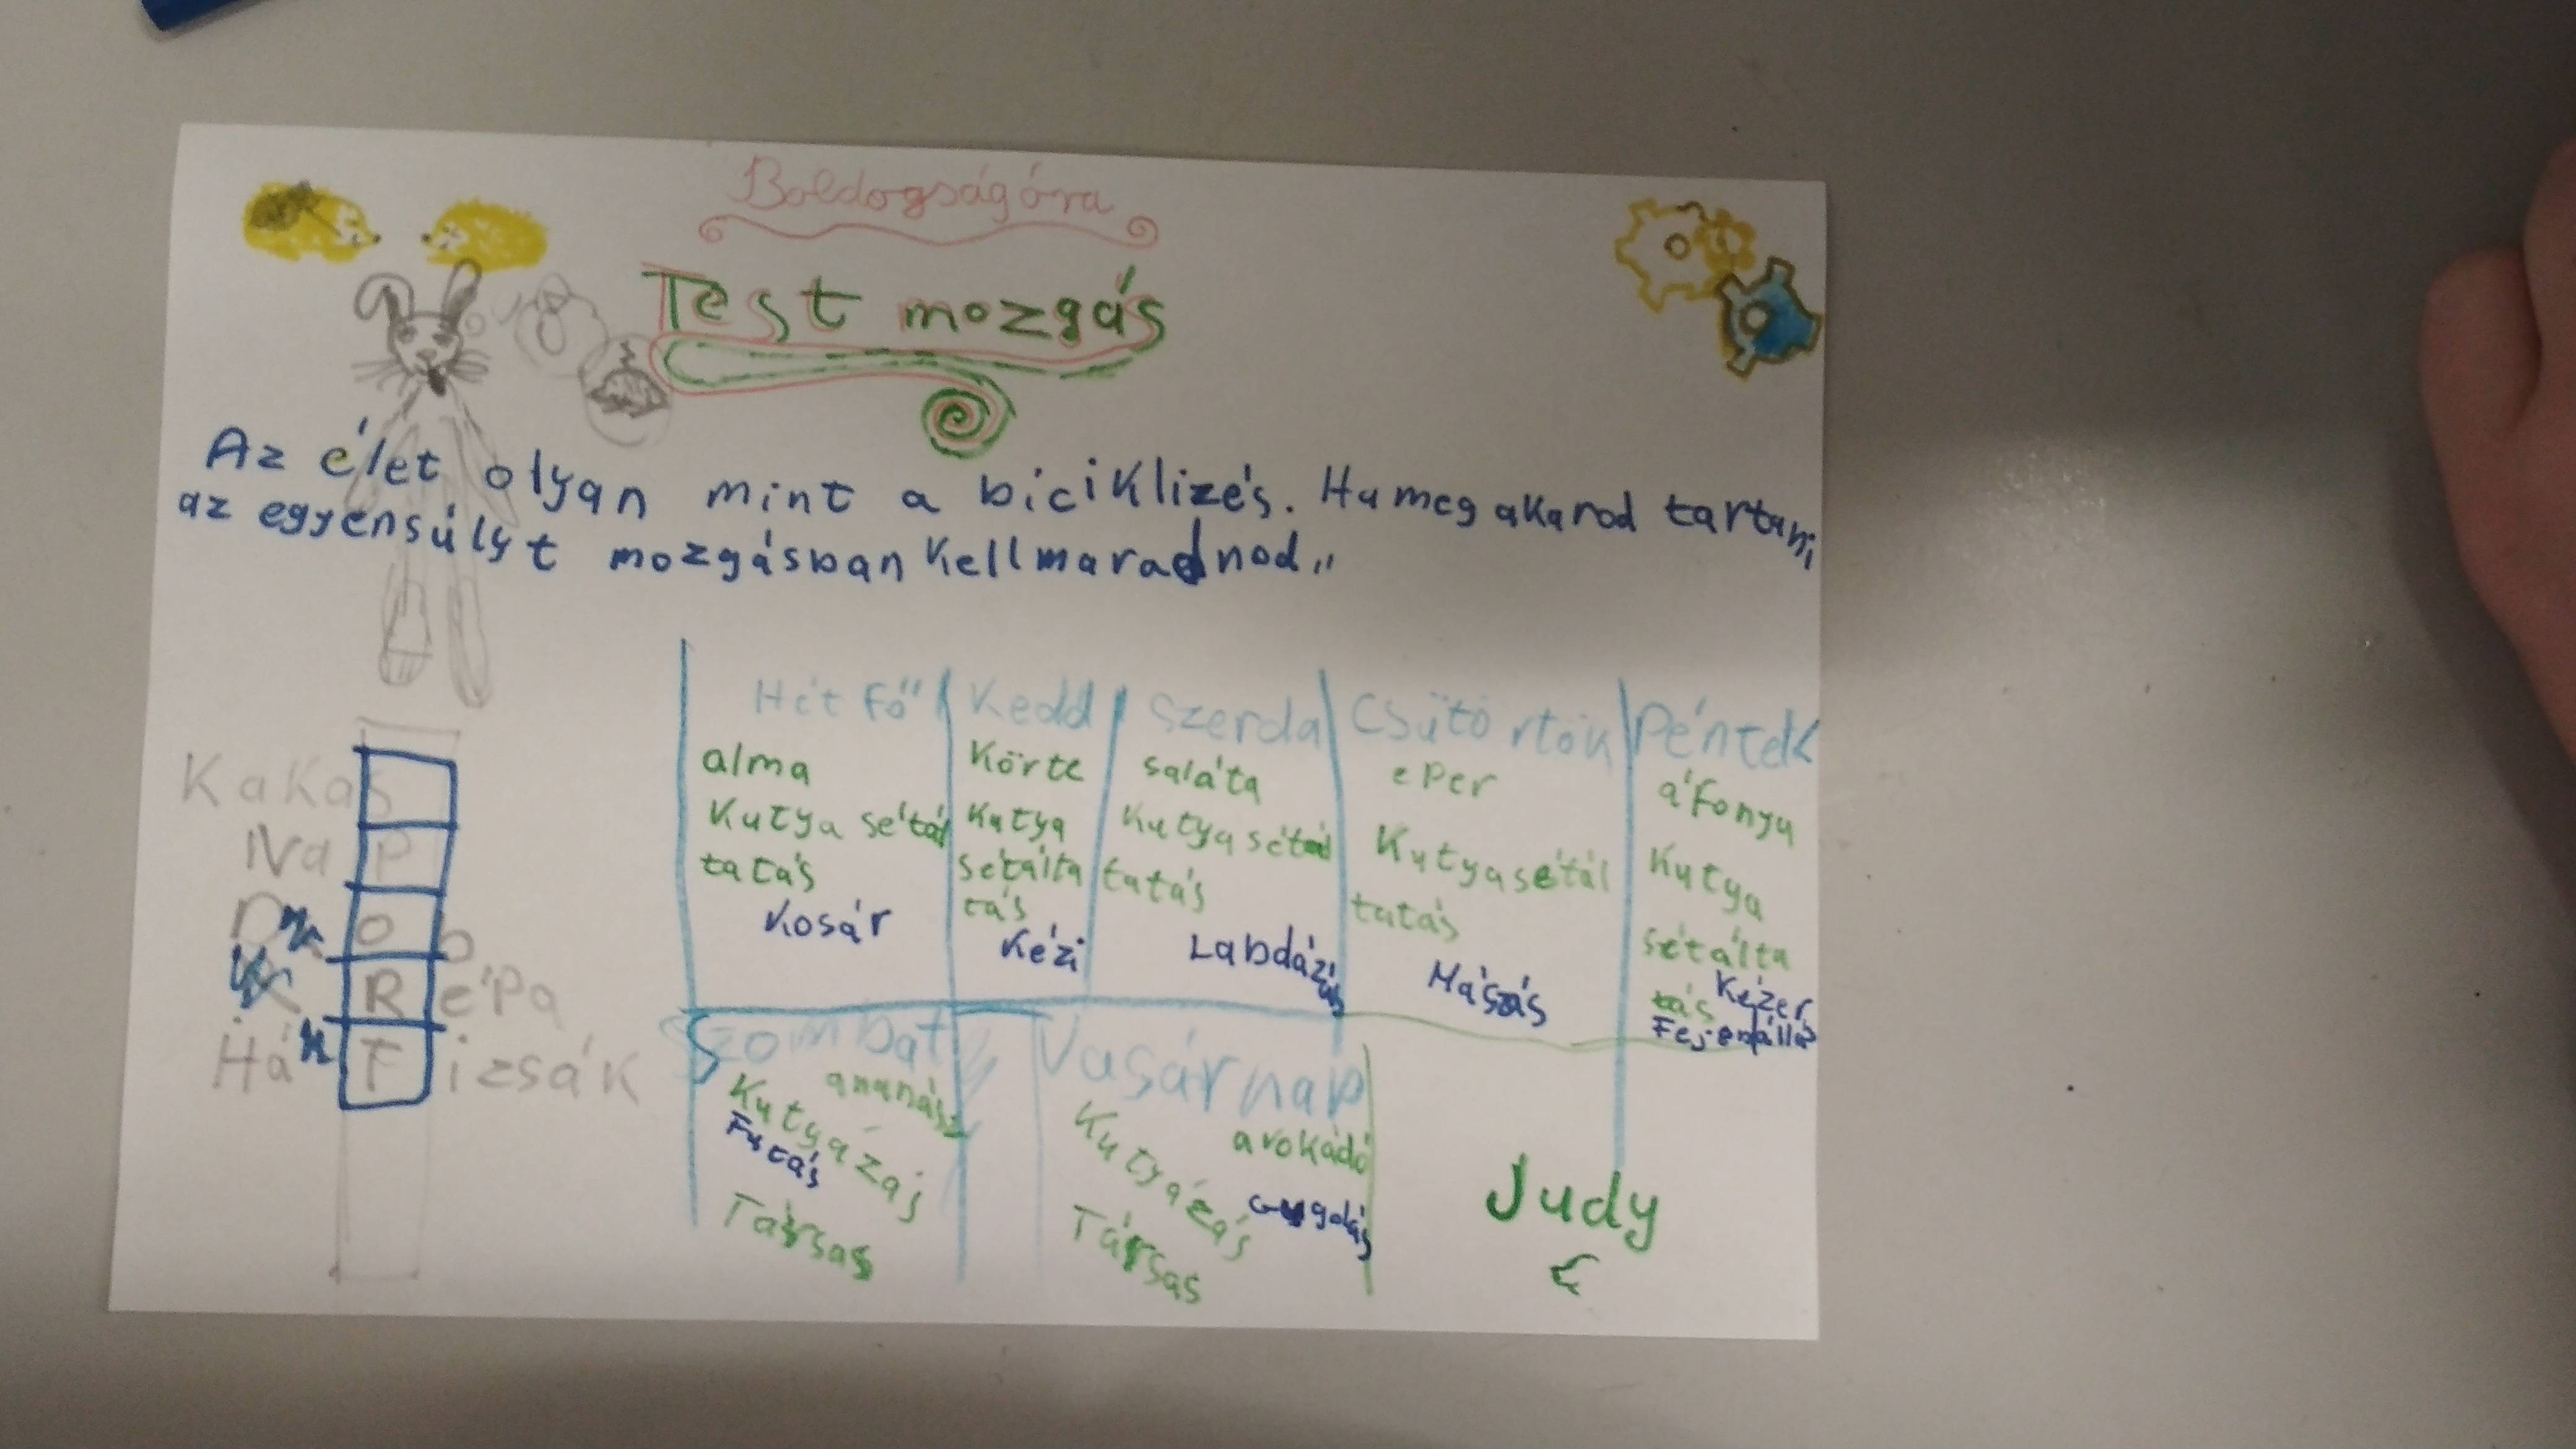 Boldogságóra
Test mozgás
Az élet olyan mint a biciklizés. Ha meg akarod tartani
az egyensúlyt mozgásban kell maradnod."
Kakas
Nap
o
Répa
Hátizsák
Hét fő
alma
Kutya sétál
tatás
Kosár
Kedd
Körte
Kutya
sétálta
tás
Kézi
Szerda
saláta
Kutya sétál
tatás
Labdázás
Csütörtök
eper
Kutyasétál
tatás
Mászás
Péntek
áfonya
Kutya
sétálta
tás
Kézen
Fejenállás
Szombat
ananász
Kutyázás
Futás
Társas
Vasárnap
avokádó
Kutyázás
Társas
Judy